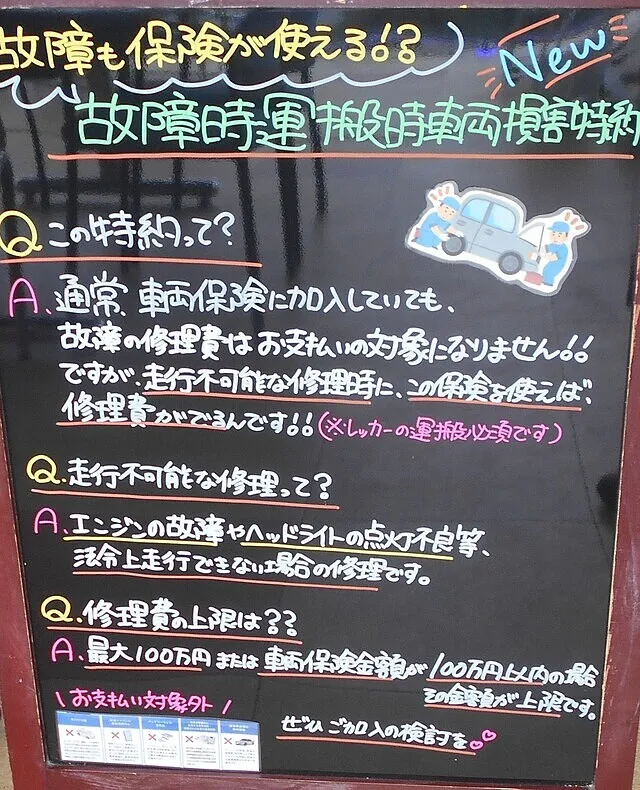 故障も保険が使える!?
New
故障時運搬時車両損害特約
Q この特約って?
A、通常、車両保険に加入していても、
故障の修理費はお支払いの対象になりません!!
ですが、走行不可能な修理時に、この保険を使えば、
修理費がでるんです!!(※レッカーの運搬必須です)
Q.走行不可能な修理って?
A、エンジンの故障やヘッドライトの点灯不良等、
法令上走行できない場合の修理です。
Q.修理費の上限は??
A、最大100万円または車両保険金額が100万円以内の場合
その金額が上限です。
\お支払い対象外/
ぜひご加入の検討を